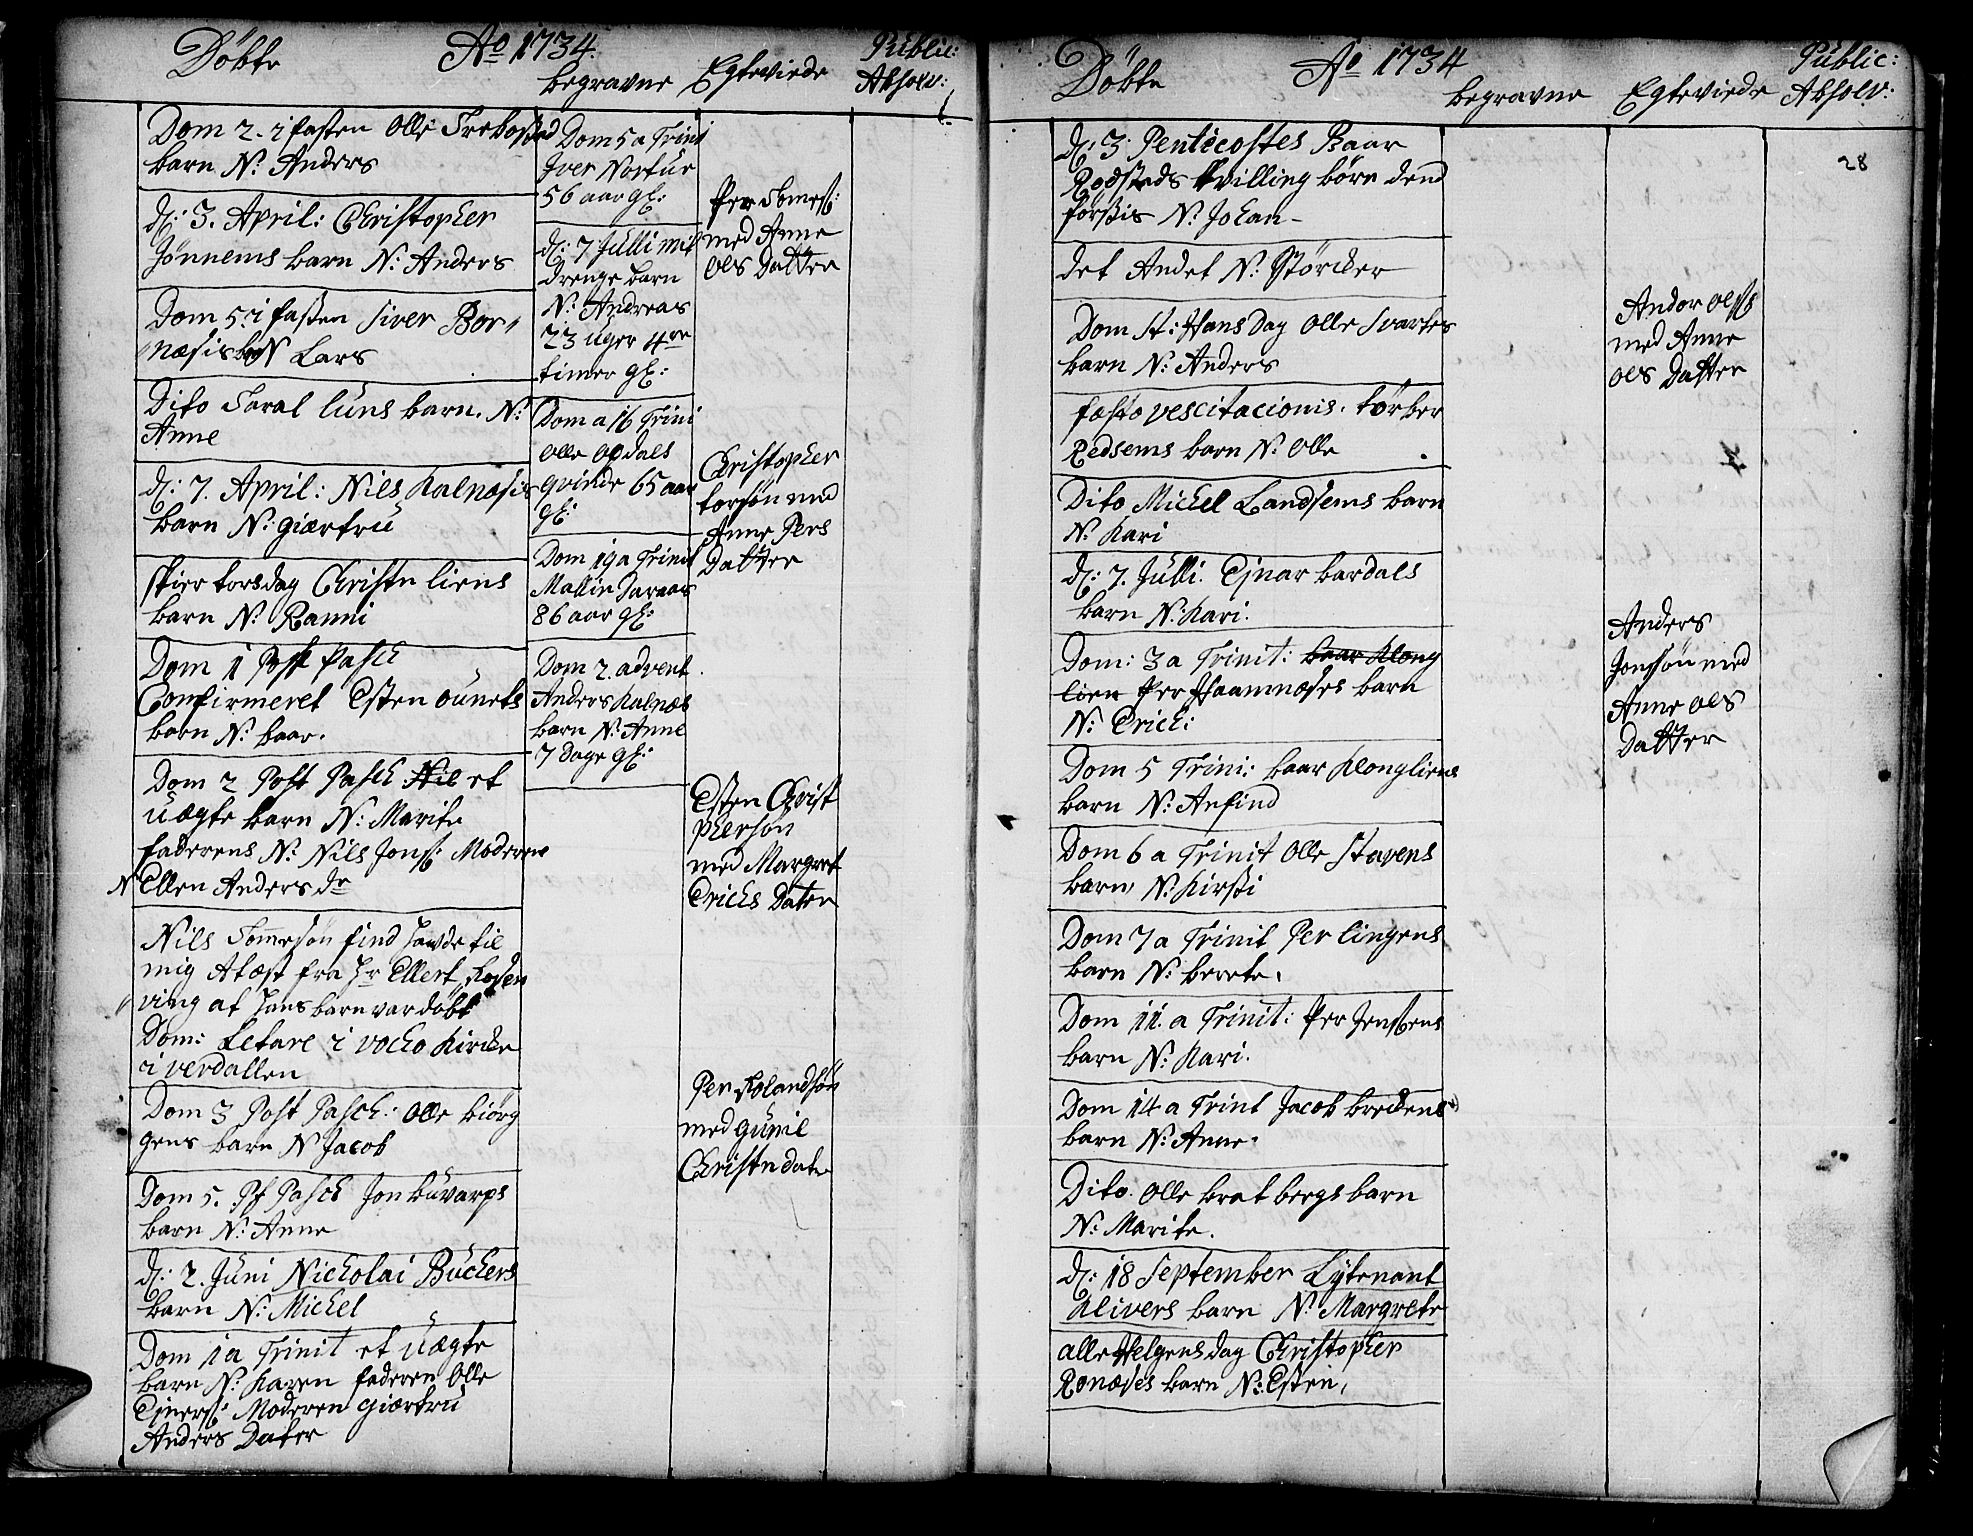 Döbte Ao 1734.
begravne Egteviede Public:
Absolv:
Dom 2. i fasten Olle Trebostad
barn N: Anders
d: 3. April: Christopher
Jönnems barn N: Anders
Dom 5. i fasten Siver Bor
næsis barn N Lars
Dito Saral luns barn. N:
Anne
d: 7. April: Nils Kalnæsis
barn N: giærtru
Skier torsdag Christn liens
barn N: Ranni
Dom 1 Post Pasch
Confirmeret Esten ounets
barn N: baar.
Dom 2 Post Pasch et
uægte barn N: Marite
faderens N: Nils Jons: Moderen
N Ellen Anders dr
Nils Tomesön find hawde til
mig Atæst fra Hr Ellert Rosen
ving at hans barn var döbt
Dom: Letare i vocko Kircke
i verdallen
Dom 3 Post Pasch: Olle biörg
gens barn N Jacob
Dom 5. Pf Pasch Jon buvarps
barn N: Anne
d: 2. Juni Nicholai Buchers
barn N: Michel
Dom 1 a Trinit et uægte
barn N: Karen faderen Olle
Ejners: Moderen giærtru
Anders Dater
Dom 5 a Trini
Iver Nortur
56 aar gl:
d: 7 Julli mit
drenge barn
N: Andreas
23 uger 4re
timer gl:
Dom a 16 Trini
Olle Opdals
qvinde 65 aar
gl:
Dom 19 a Trinit
Mallin
86 aar gl:
Dom 2. advent
Anders Kalnæs
barn N: Anne
7 Dage gl:
Per Tomess:
med Anne
Ols Datter
Christopher
torsön med
Anne Pers
Datter
Esten Christ
phersön
med Margret
Erichs Dater
Per Rolandsön
med gunil
Christn dat
Döbte Ao 1734
begravne Egteviede Public:
Absolv:
28
d: 3 Penticostes Baar
Rodsteds tvilling börn dend
förstis N: Johan-
det Andet N: Störcker
Dom St: Hans Dag Olle Svartes
barn N: Anders
fæsto vescitacionis. törber
Redsems barn N: Olle
Dito Michel Landsems barn
N: Kari
d: 7. Julli. Ejnar bardals
barn N: Kari.
Dom: 3 a Trinit: baar Klong
lien Per Haamnæses barn
N: Erich:
Dom 5 Trini: baar Klongliens
barn N: Anfind
Dom 6 a Trinit Olle Stavens
barn N: Kirsti
Dom 7 a Trinit Per lingens
barn N: berete.
Dom 11. a Trinit: Per Jenssens
barn N: Kari.
Dom 14 a Trint Jacob breckens
barn N: Anne.
Dito. Olle brat bergs barn
N: Marite.
d: 18 September Lytenant
Klivers barn N: Margrete
alle Helgens dag Christopher
Ronæses barn N: Esten,
Andor Olss
med Anne
Ols Datter
Anders
Jonsön med
Anne Ols
Datter